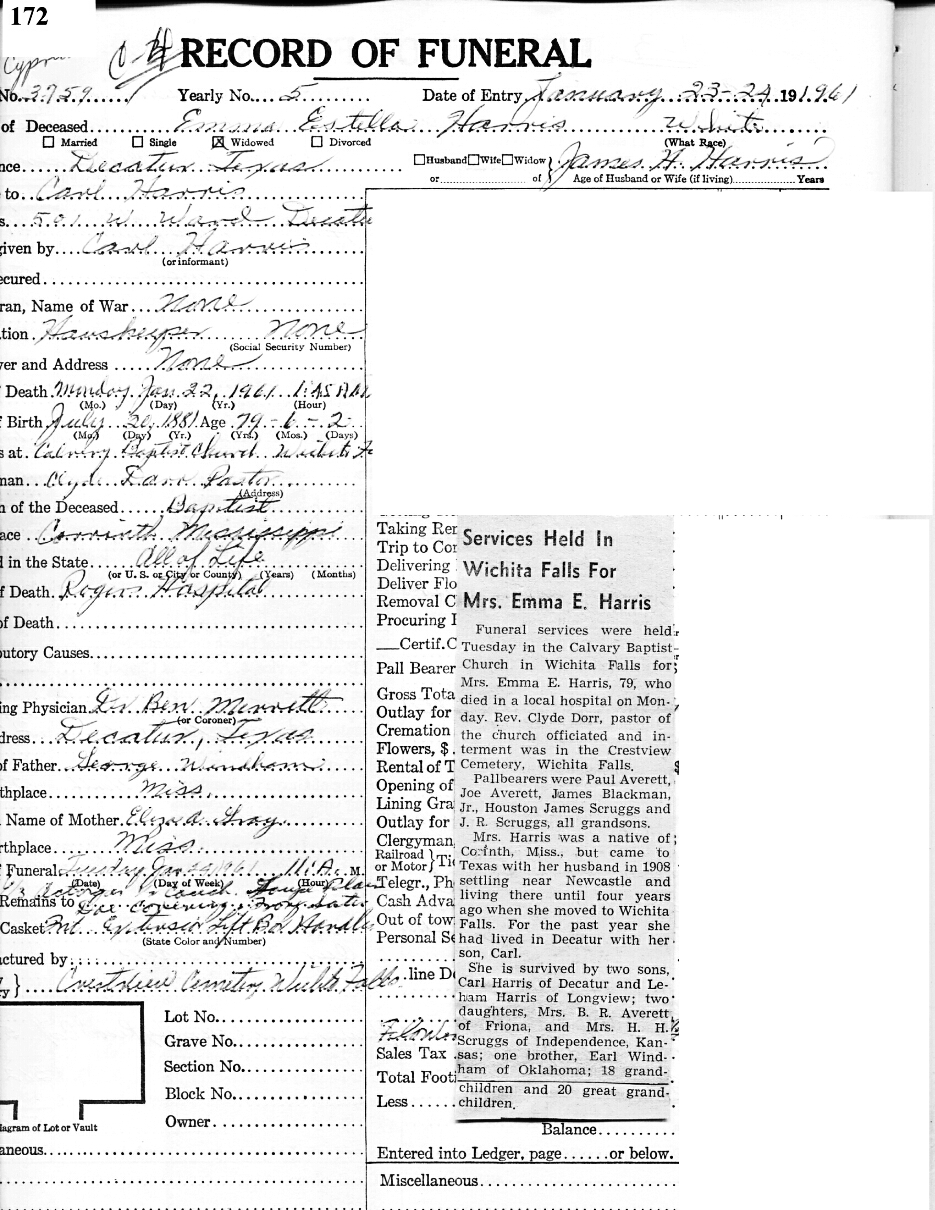 172
RECORD OF FUNERAL
No. 3759 Yearly No. 5 Date of Entry January 23-24 191961
of Deceased Emma Estella Harris White
☐ Married ☐ Single ☒ Widowed ☐ Divorced (What Race)
nce Decatur Texas ☐Husband☐Wife☐Widow } James H. Harris
or of Age of Husband or Wife (if living) Years
to Carl Harris
s. 501 W Ward Decatu
given by Carl Harris
(or informant)
ecured
ran, Name of War None
tion None
(Social Security Number)
er and Address None
Death Monday Jan. 22, 1961 1:45 AM
(Mo.) (Day) (Yr.) (Hour)
Birth July 20, 1881 Age 79-6-2
(Mo.) (Day) (Yr.) (Yrs.) (Mos.) (Days)
s at Calvery Baptist Church Wichita Fa
man Clyde Pastor
(Address)
n of the Deceased Baptist
ace Corinth Mississippi
d in the State All of Life
(or U. S. or City or County) (Years) (Months)
f Death Rogers Hospital
of Death
butory Causes
ing Physician Dr Ben Merrett
(or Coroner)
dress Decatur, Texas
of Father George Windham
thplace Miss.
Name of Mother Gray
rthplace Miss
Funeral Tuesday Jan 24 1961 11:A. M.
(Date) (Day of Week) (Hour)
Remains to
Casket
(State Color and Number)
actured by
} Crestview Cemetery Wichita Falls
Lot No.
Grave No.
Section No.
Block No.
Owner
iagram of Lot or Vault
aneous
Taking Rer
Trip to Cor
Delivering
Deliver Flo
Removal C
Procuring
Certif.C
Pall Bearer
Gross Tota
Outlay for
Cremation
Flowers, $
Rental of T
Opening of
Lining Gra
Outlay for
Clergyman,
Railroad
or Motor } Ti
Telegr., Ph
Cash Adva
Out of tow
Personal Se
line De
Sales Tax
Total Footi
Less
Services Held In
Wichita Falls For
Mrs. Emma E. Harris
Funeral services were held
Tuesday in the Calvary Baptist
Church in Wichita Falls for
Mrs. Emma E. Harris, 79, who
died in a local hospital on Mon-
day. Rev. Clyde Dorr, pastor of
the church officiated and in-
terment was in the Crestview
Cemetery, Wichita Falls.
Pallbearers were Paul Averett,
Joe Averett, James Blackman,
Jr., Houston James Scruggs and
J. R. Scruggs, all grandsons.
Mrs. Harris was a native of
Corinth, Miss., but came to
Texas with her husband in 1908
settling near Newcastle and
living there until four years
ago when she moved to Wichita
Falls. For the past year she
had lived in Decatur with her
son, Carl.
She is survived by two sons,
Carl Harris of Decatur and Le-
ham Harris of Longview; two
daughters, Mrs. B. R. Averett
of Friona, and Mrs. H. H.
Scruggs of Independence, Kan-
sas; one brother, Earl Wind-
ham of Oklahoma; 18 grand-
children and 20 great grand-
children.
Balance
Entered into Ledger, page......or below.
Miscellaneous